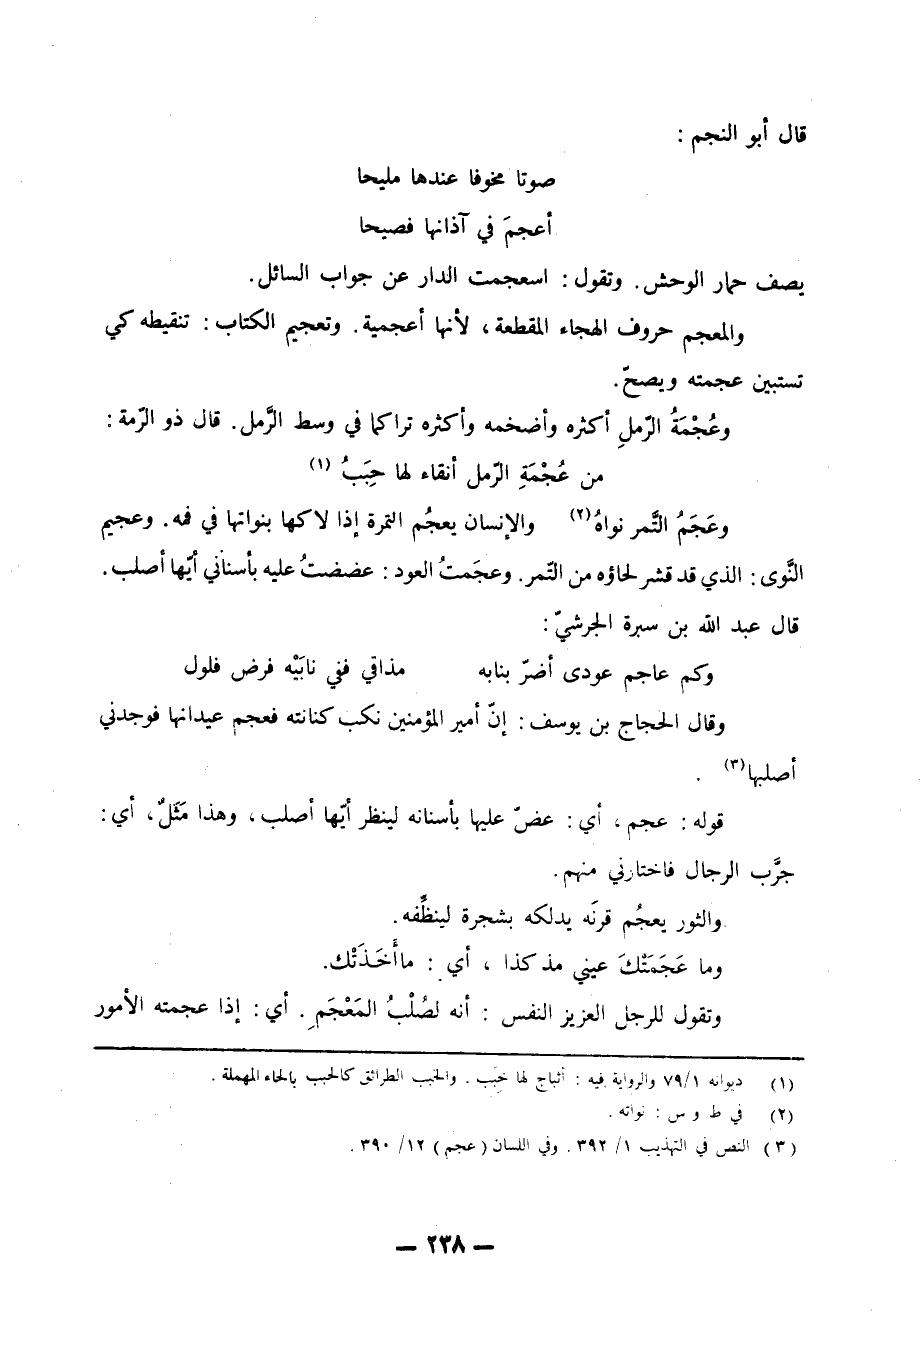 قال أبو النجم :
صوتا مخوفا عندها مليحا
أعجمَ في آذانها فصيحا
يصف حمار الوحش. وتقول : اسعجمت الدار عن جواب السائل.
والمعجم حروف الهجاء المقطعة ، لأنها أعجمية. وتعجيم الكتاب : تنقيطه كي
تستبين عجمته ويصحّ.
وعُجْمَةُ الرّملِ أكثره وأضخمه وأكثره تراكما في وسط الرَّمل. قال ذو الرّمة :
من عُجْمَةِ الرّمل أنقاء لها حِبَبُ (١)
وعَجَمُ التَّمر نواهُ(٢) والإنسان يعجُم التمرة إذا لاكها بنواتها في فمه. وعجيم
النَّوى : الذي قد قشر لحاؤه من التّمر. وعجَمتُ العود : عضضتُ عليه بأسناني أيّها أصلب.
قال عبد الله بن سبرة الجرشيّ :
وكم عاجم عودى أضرّ بنابه مذاقي ففي نابَيْه فرض فلول
وقال الحجاج بن يوسف : إنّ أمير المؤمنين نكب كنانته فعجم عيدانها فوجدني
أصلبها(٣) .
قوله : عجم ، أي : عضّ عليها بأسنانه لينظر أيّها أصلب ، وهذا مَثَلٌ ، أي :
جرَّب الرجال فاختارني منهم.
والثور يعجُم قرنَه يدلكه بشجرة لينظِّفه.
وما عَجَمَتْكَ عيني مذ كذا ، أي : ما أَخَذَتْك.
وتقول للرجل العزيز النفس : أنه لصُلْبُ المَعْجَمِ . أي : إذا عجمته الأمور
(١) ديوانه ٧٩/١ والرواية فيه : أثباج لها خِبَب . والخبب الطرائق كالحبب بالحاء المهملة .
(٢) في ط و س : نواته .
(٣) النص في التهذيب ١/ ٣٩٢. وفي اللسان ( عجم ) ١٢/ ٣٩٠ .
— ٢٣٨ —